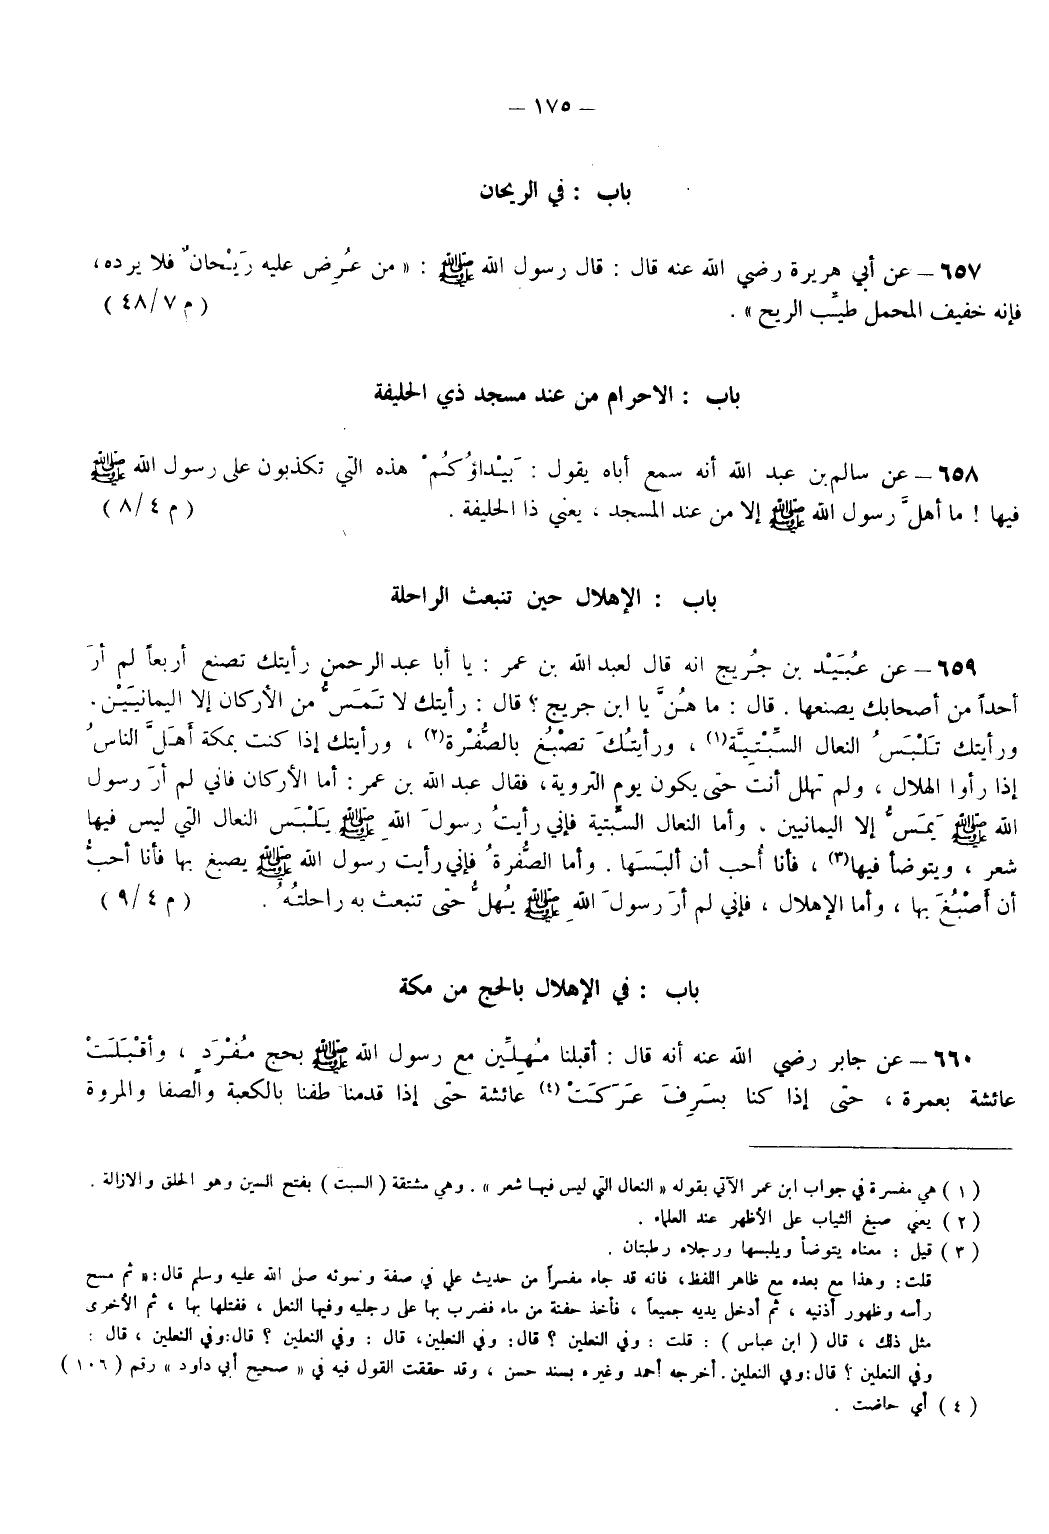 – ١٧٥ –
باب : في الريحان
٦٥٧ – عن أبي هريرة رضي الله عنه قال : قال رسول الله ﷺ : « من عُرِض عليه رَيْحانٌ فلا يرده ،
فإنه خفيف المحمل طيِّب الريح » . ( م ٧/٤٨ )
باب : الاحرام من عند مسجد ذي الحليفة
٦٥٨ – عن سالم بن عبد الله أنه سمع أباه يقول : بَيْداؤُكُمْ هذه التي تكذبون على رسول الله ﷺ
فيها ! ما أهلَّ رسول الله ﷺ إلا من عند المسجد ، يعني ذا الحليفة . ( م ٤/٨ )
باب : الإهلال حين تنبعث الراحلة
٦٥٩ – عن عُبَيْد بن جُريج انه قال لعبد الله بن عمر : يا أبا عبد الرحمن رأيتك تصنع أربعاً لم أرَ
أحداً من أصحابك يصنعها . قال : ما هُنَّ يا ابن جريج ؟ قال : رأيتك لا تَمَسُّ من الأركان إلا اليمانيَيْن .
ورأيتك تَلْبَسُ النعال السِّبْتِيَّة(١) ، ورأيتُكَ تصْبُغ بالصُّفْرة(٢) ، ورأيتك إذا كنت بمكة أهَلَّ الناسُ
إذا رأوا الهلال ، ولم تهلل أنت حتى يكون يوم التروية ، فقال عبد الله بن عمر : أما الأركان فاني لم أرَ رسول
الله ﷺ يَمَسُّ إلا اليمانيين . وأما النعال السِّبتية فإني رأيتُ رسولَ اللهِ ﷺ يلْبَس النعال التي ليس فيها
شعر ، ويتوضأ فيها(٣) ، فأنا أُحب أن ألبَسَها . وأما الصُّفرةُ فإني رأيت رسول الله ﷺ يصبغ بها فأنا أحبُّ
أن أَصْبُغَ بها ، وأما الإهلال ، فإني لم أرَ رسولَ اللهِ ﷺ يُهلُّ حتى تنبعث به راحلتُهُ . ( م ٤/٩ )
باب : في الإهلال بالحج من مكة
٦٦٠ – عن جابر رضي الله عنه أنه قال : أقبلنا مُهِلِّين مع رسول الله ﷺ بحج مُفْرَدٍ ، وأقْبَلَتْ
عائشة بعمرة ، حتى إذا كنا بسَرِفَ عَرَكَتْ(٤) عائشة حتى إذا قدمنا طفنا بالكعبة والصفا والمروة
( ١ ) هي مفسرة في جواب ابن عمر الآتي بقوله « النعال التي ليس فيها شعر » . وهي مشتقة ( السبت ) بفتح السين وهو الحلق والازالة .
( ٢ ) يعني صبغ الثياب على الأظهر عند العلماء .
( ٣ ) قيل : معناه يتوضأ ويلبسها ورجلاه رطبتان .
قلت : وهذا مع بعده مع ظاهر اللفظ ، فانه قد جاء مفسراً من حديث علي في صفة وضوئه صلى الله عليه وسلم قال : « ثم مسح
رأسه وظهور أذنيه ، ثم أدخل يديه جميعاً ، فأخذ حفنة من ماء فضرب بها على رجليه وفيها النعل ، ففتلها بها ، ثم الأخرى
مثل ذلك ، قال ( ابن عباس ) : قلت : وفي النعلين ؟ قال : وفي النعلين ، قال : وفي النعلين ؟ قال : وفي النعلين ، قال :
وفي النعلين ؟ قال : وفي النعلين . أخرجه أحمد وغيره بسند حسن ، وقد حققت القول فيه في « صحيح أبي داود » رقم ( ١٠٦ )
( ٤ ) أي حاضت .